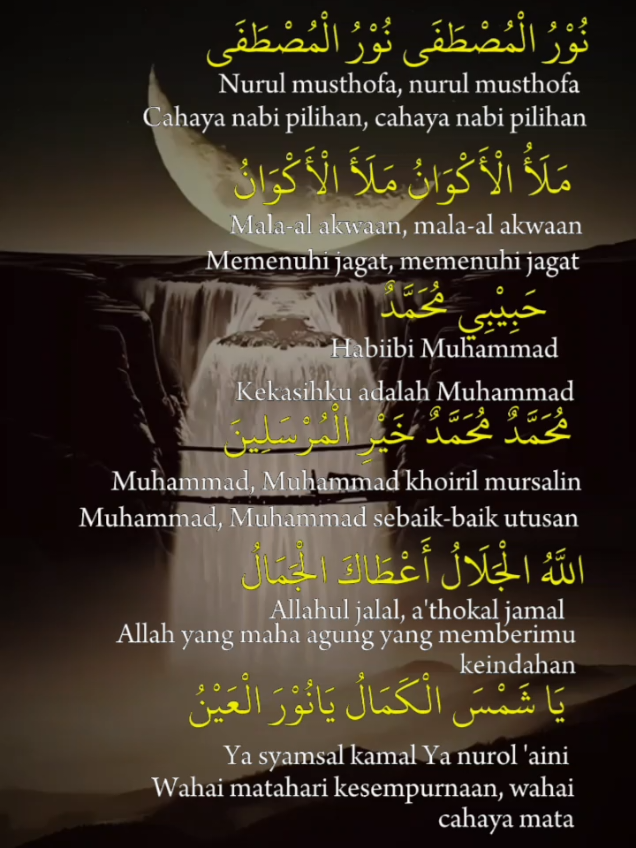 نُوْرُ الْمُصْطَفَى نُوْرُ الْمُصْطَفَى
Nurul musthofa, nurul musthofa
Cahaya nabi pilihan, cahaya nabi pilihan
مَلَأُ الْأَكْوَانُ مَلَأَ الْأَكْوَانُ
Mala-al akwaan, mala-al akwaan
Memenuhi jagat, memenuhi jagat
حَبِيْبِي مُحَمَّدٌ
Habiibi Muhammad
Kekasihku adalah Muhammad
مُحَمَّدٌ مُحَمَّدٌ خَيْرِ الْمُرْسَلِينَ
Muhammad, Muhammad khoiril mursalin
Muhammad, Muhammad sebaik-baik utusan
اللَّهُ الْجَلَالُ أَعْطَاكَ الْجَمَالُ
Allahul jalal, a'thokal jamal
Allah yang maha agung yang memberimu
keindahan
يَا شَمْسَ الْكَمَالُ يَانُوْرَ الْعَيْنُ
Ya syamsal kamal Ya nurol 'aini
Wahai matahari kesempurnaan, wahai
cahaya mata